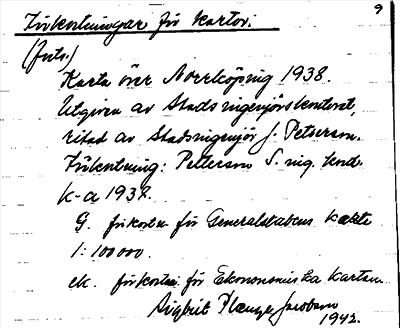 9
Förkortningar för kartor.
(forts.)
Karta över Norrköping 1938.
Utgiven av Stadsingenjörskontoret,
ritad av Stadsingenjör J. Petterson.
Förkortning: Petterson S. ing. kont.
k-a 1938.
G. förkortn för Generalstabens karta
1:100000
ek. förkortn. för Ekonomiska kartan
Jacobson
1942.